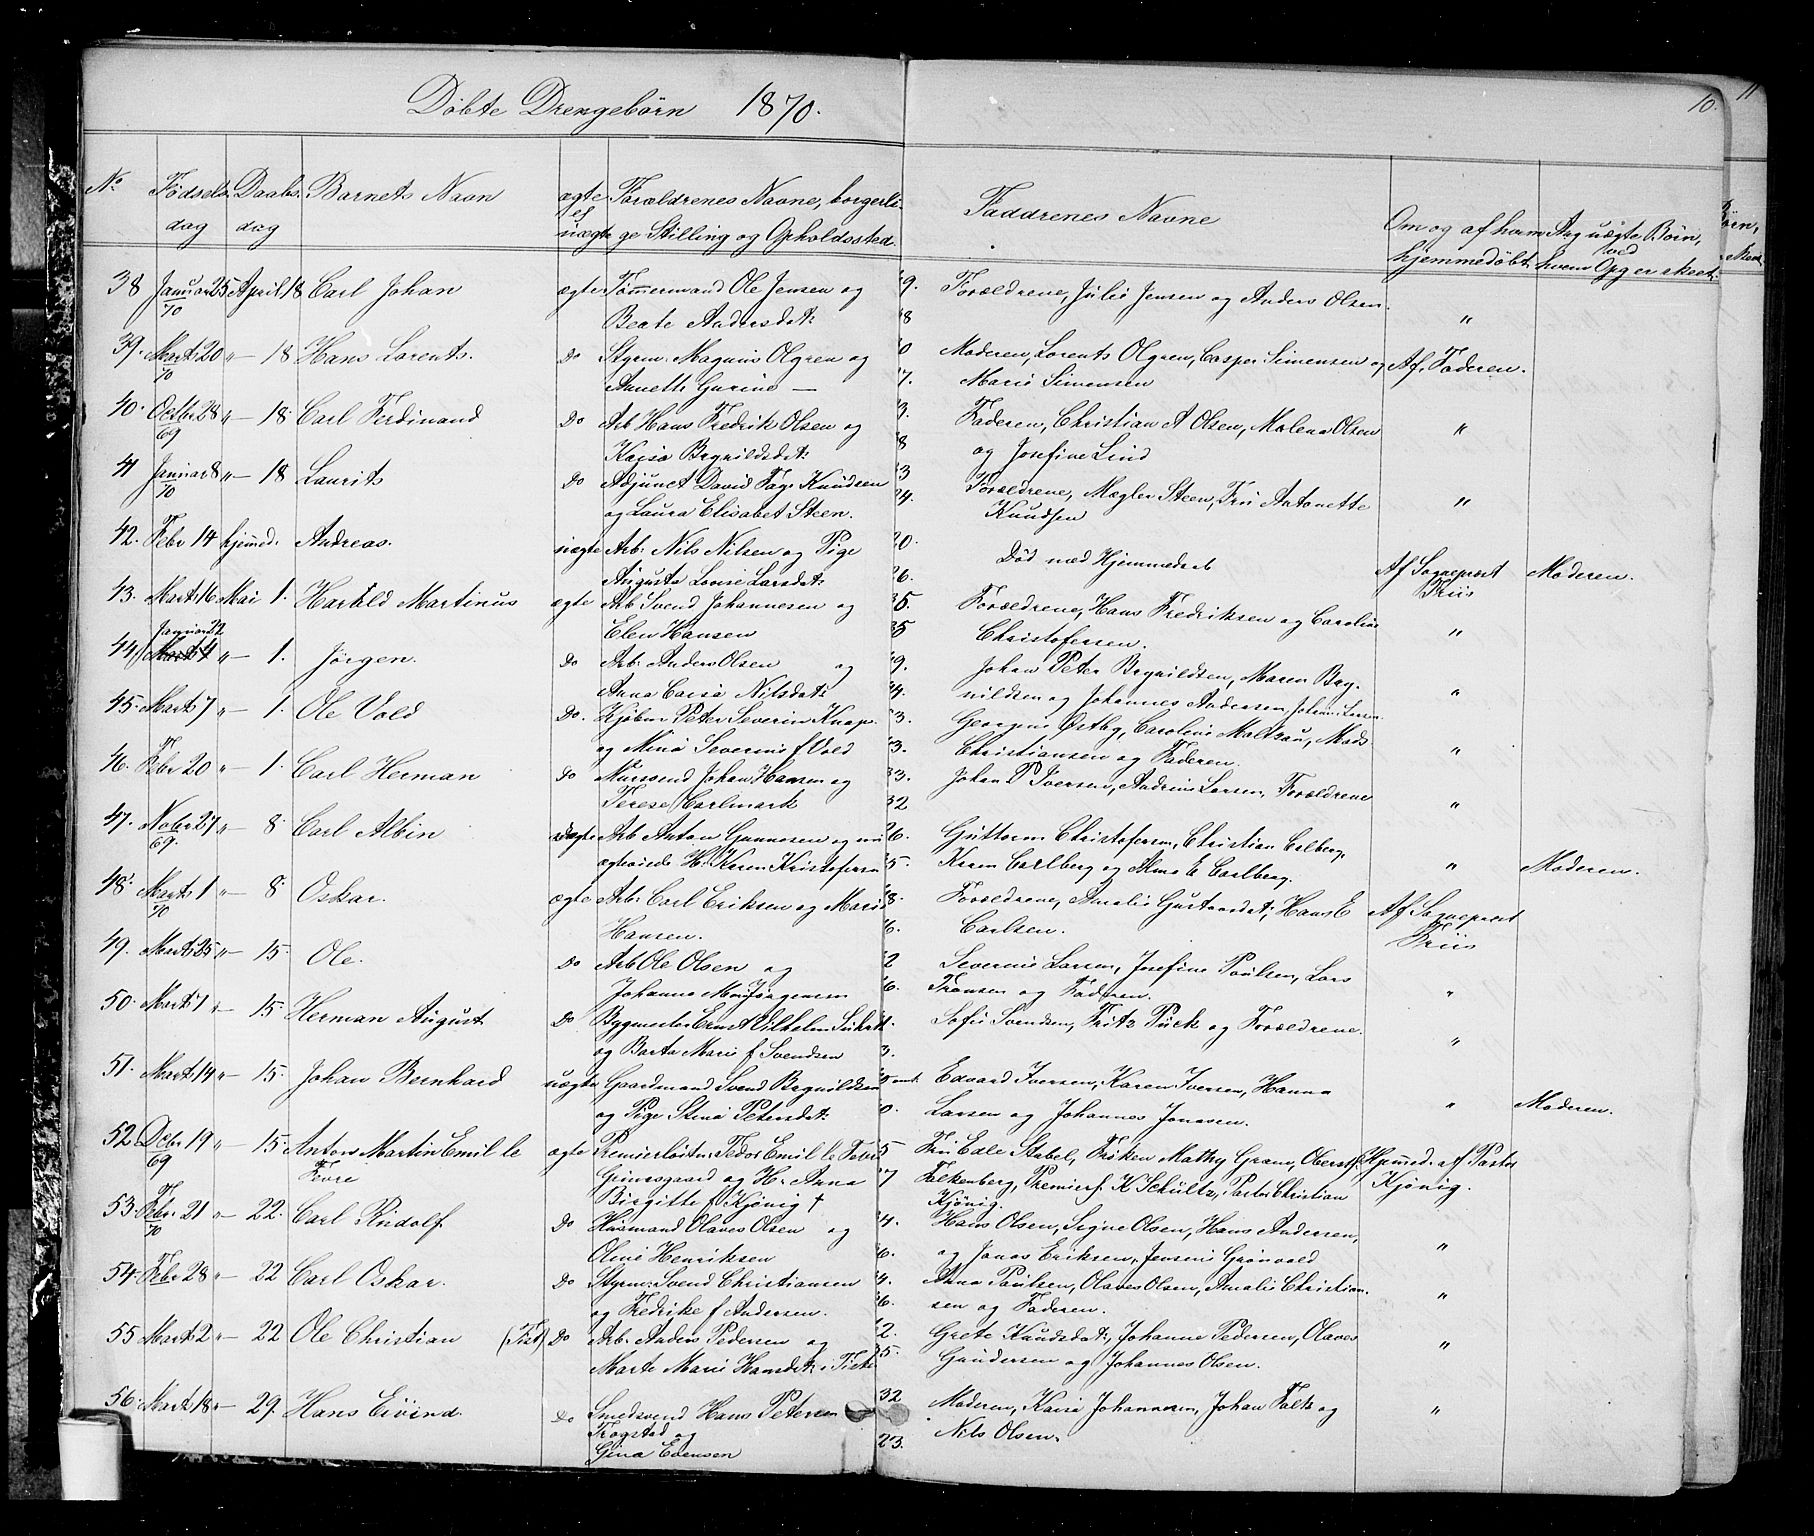 Døbte Drengebørn 1870.
10.
11
No Fødsels dag Daabs dag Barnets Navn ægte el uægte Forældrenes Navne, borgerlige Stilling og Opholdssted. Faddrenes Navne Om og af hvem hjemmedøbt Ang uægte Børn, ved hvem Opg er skeet.
38 Januar 25 70 April 18 Carl Johan ægte Tømmermand Ole Jensen og 9. Forældrene, Julie Jensen og Anders Olsen. "
Beate Andersdat: 8
39. Mart 20 70 "— 18 Hans Lorents. Do Styrm: Magnus Olgren og 0 Moderen, Lorents Olgren, Casper Simensen og Af Faderen.
Anette Gurine — 7. Marie Simensen
40. Octbr 28 69 "— 18. Carl Ferdinand Do Arb Hans Fredrik Olsen og 3. Faderen, Christian A Olsen, Malena Olsen "
Kaisa Brynildsdat: 8 og Josefine Lind
41 Januar 8 70 "— 18 Laurits Do Adjunct David Knudsen 33 Forældrene, Mægler Steen, Fru Antonette "
og Laura Elisabet Steen. 24. Knudsen
42. Febr 14 hjemmed. Andreas. uægte Arb: Nils Nilsen og Pige 20. Død med Hjemmedaab Af Sogneprest Friis Moderen.
Augusta Lovise Larsdat: 26.
43. Mart 16 Mai 1. Harald Martinus ægte Arb Svend Johannesen og 35. Forældrene, Hans Fredriksen og Caroline "
Elen Hansen 35 Christofersen.
44 Januar 22 "— 1. Jörgen. Do Arb: Anders Olsen og 9. Johan Peter Brynildsen, Maren Bry-
Anna Caisa Nilsdat: 44. nildsen og Johannes Andersen, Johan Larsen "
45. Mart 7 "— 1. Ole Vold Do. Kjøbm Peter Severin Knap. 3. Georgine Østby, Caroline Maltzau, Mads
og Mina Severine f Vold 3. Christiansen og Faderen. "
46. Febr 20 "— 1. Carl Herman Do Mursvend Johan Hansen og 33. Johan P Iversen, Andrine Larsen, Forældrene
Terese Carlmark 32 "
47. Nobr 27 69. "— 8. Carl Albin uægte Arb Anton Gunnesen og nu 26. Guttorm Christofersen, Christian Carlberg,
ægteviede H: Karen Kristofersen 35. Karen Carlberg og Anna E Carlberg. " Moderen.
48. Mart 1 70 "— 8. Oskar. ægte Arb: Carl Eriksen og Marie 8. Forældrene, Amalie Gustavsdat; Hans E Af Sogneprest
Hansen. 6. Carlsen. Friis
49. Mart 25 "— 15. Ole. Do Arb Ole Olsen og 2 Severine Larsen, Josefine Paulsen, Lars
Johanna Jörgensen 6. Fransen og Faderen. "
50. Mart 1 "— 15 Herman August Do Bygmester Ernst Vilhelm Sofie Svendsen, Fritz Puck og Forældrene.
og Barta Marie f Svendsen 3. "
51. Mart 14 "— 15. Johan Bernhard uægte Gaardmand Svend Brynildsen Edvard Iversen, Karen Iversen, Hanna
og Pige Stina Petersdat: 0. Larsen og Johannes Jonasen. " Moderen.
52 Decbr 19 69 "— 15. Anton Martin Emil le Fevre ægte Premierløitn: Fedor Emil le Fevre 5 Fru Edle Stabel, Frøken Mathy Gram, Oberst Hjemmed. af Pastor
Grimsgaard og H: Anna 7 Falkenberg, Premierl. K Schultz, Pastor Christian Kjönig.
Birgitte f Kjönig † Kjönig.
53. Febr. 21 70 "— 22. Carl Rudolf Do Husmand Olaves Olsen og 4. Hans Olsen, Signe Olsen, Hans Andersen,
Oline Henriksen 6. og Jonas Eriksen, Jensine Grönvold "
54. Febr 28 "— 22 Carl Oskar. Do Styrm: Svend Christiansen 4. Anna Paulsen, Olaves Olsen, Amalie Christian-
og Fredrike f Andersen. 6. sen og Faderen. "
55 Mart 2 "— 22 Ole Christian Do Arb: Anders Pedersen og 2. Grete Knudsdat, Johanne Pedersen, Olaves
Marte Marie Hansdat: 35. Gundersen og Johannes Olsen. "
56. Mart 18 "— 29. Hans Eivind. Do Smedsvend Hans Petersen 32 Moderen, Kaisa Johannesen, Johan Falk og "
Trogstad og
Gina Evensen 23. Nils Olsen.